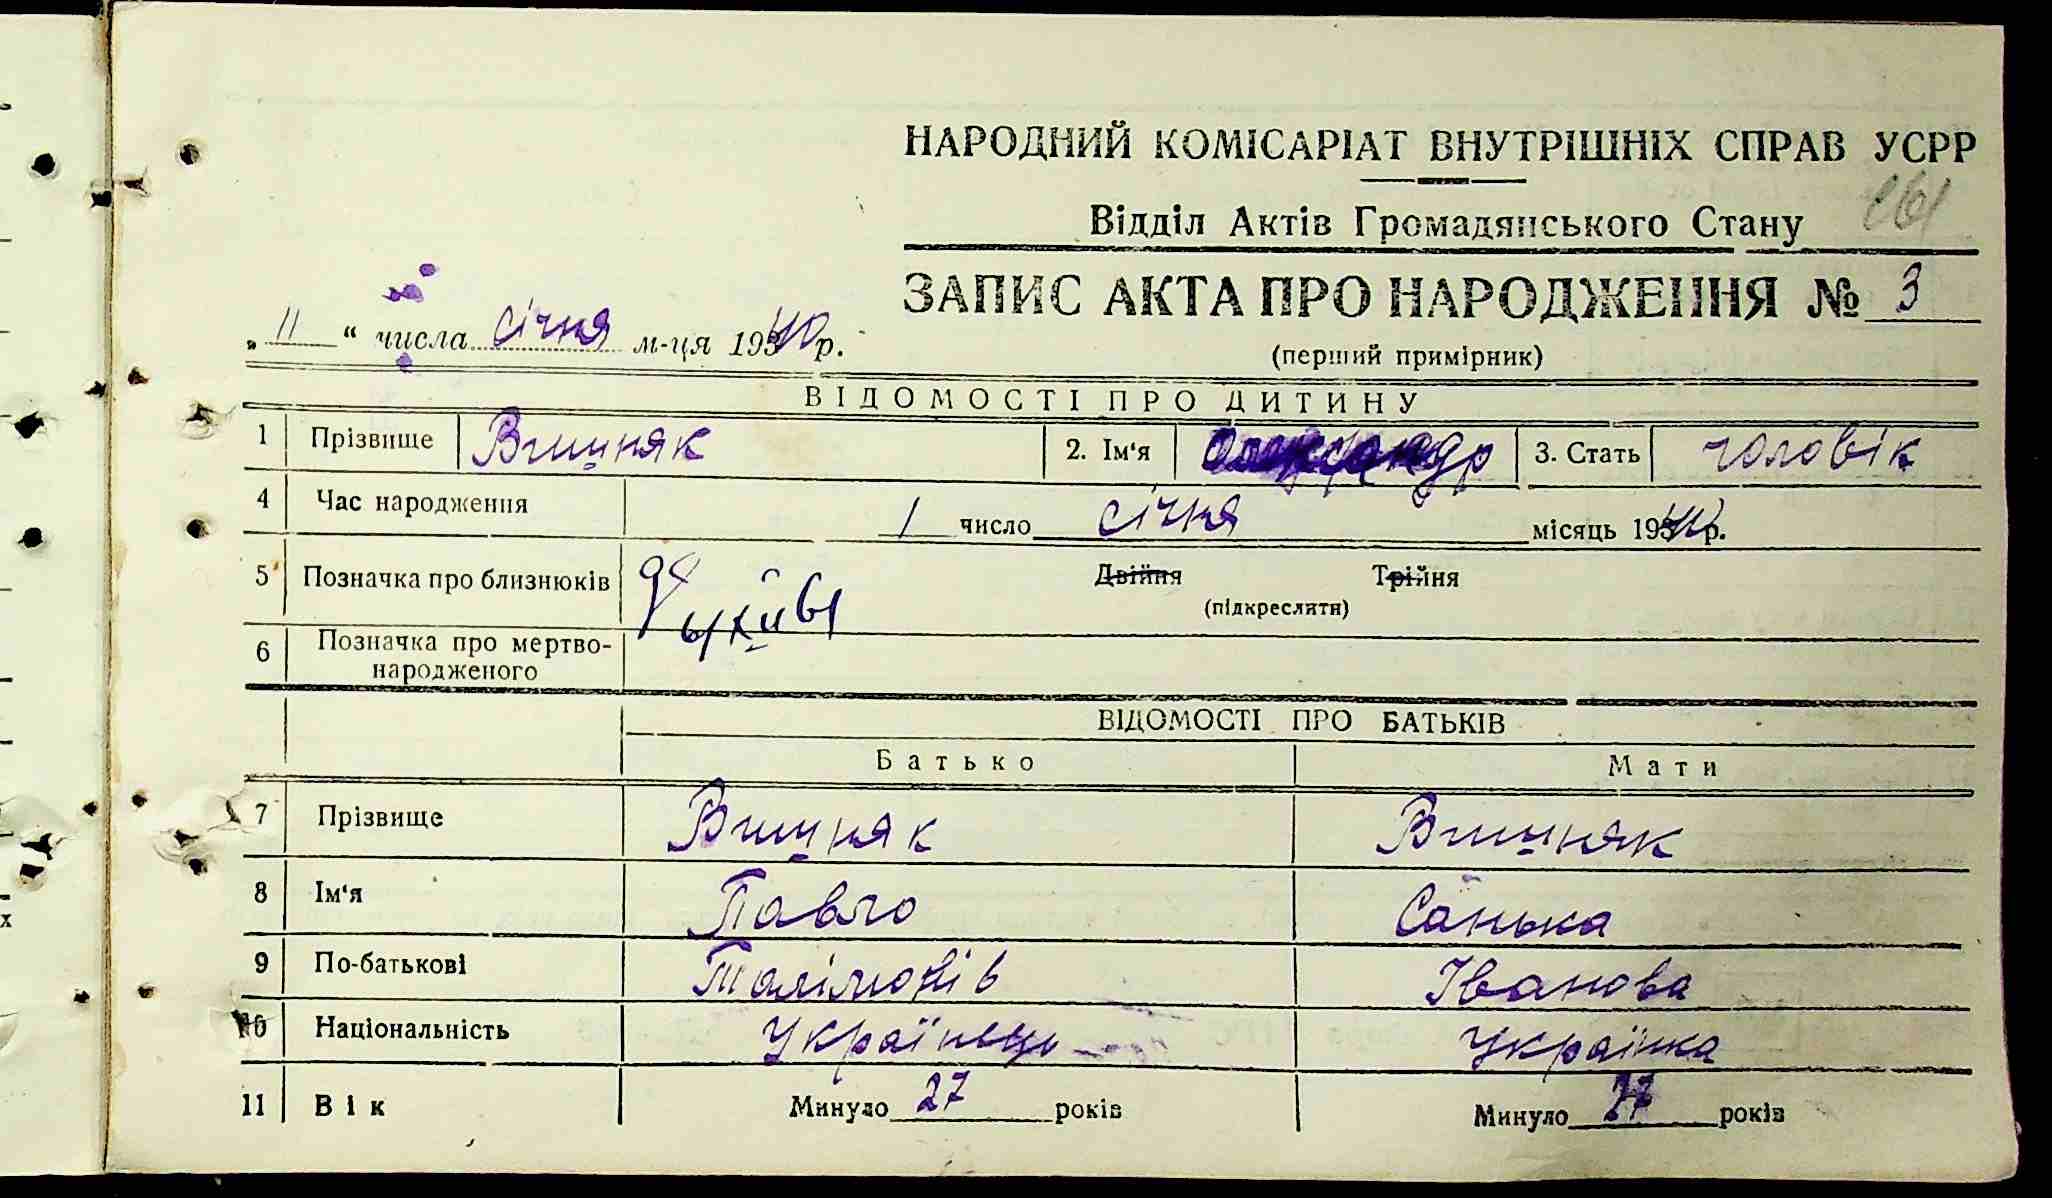 НАРОДНИЙ КОМІСАРІАТ ВНУТРІШНІХ СПРАВ УСРР
Відділ Актів Громадянського Стану
ЗАПИС АКТА ПРО НАРОДЖЕННЯ № 3
„ 11 “ числа січня м-ця 1940 р.
(перший примірник)
ВІДОМОСТІ ПРО ДИТИНУ
1 Прізвище Вишняк 2. Ім‘я Олександр 3. Стать чоловік
4 Час народження 1 число січня місяць 1940 р.
5 Позначка про близнюків Двійня Трійня
(підкреслити)
6 Позначка про мертво-
народженого
ВІДОМОСТІ ПРО БАТЬКІВ
Батько Мати
7 Прізвище Вишняк Вишняк
8 Ім‘я Павло Санька
9 По-батькові Іванова
10 Національність Українець Українка
11 Вік Минуло 27 років Минуло років